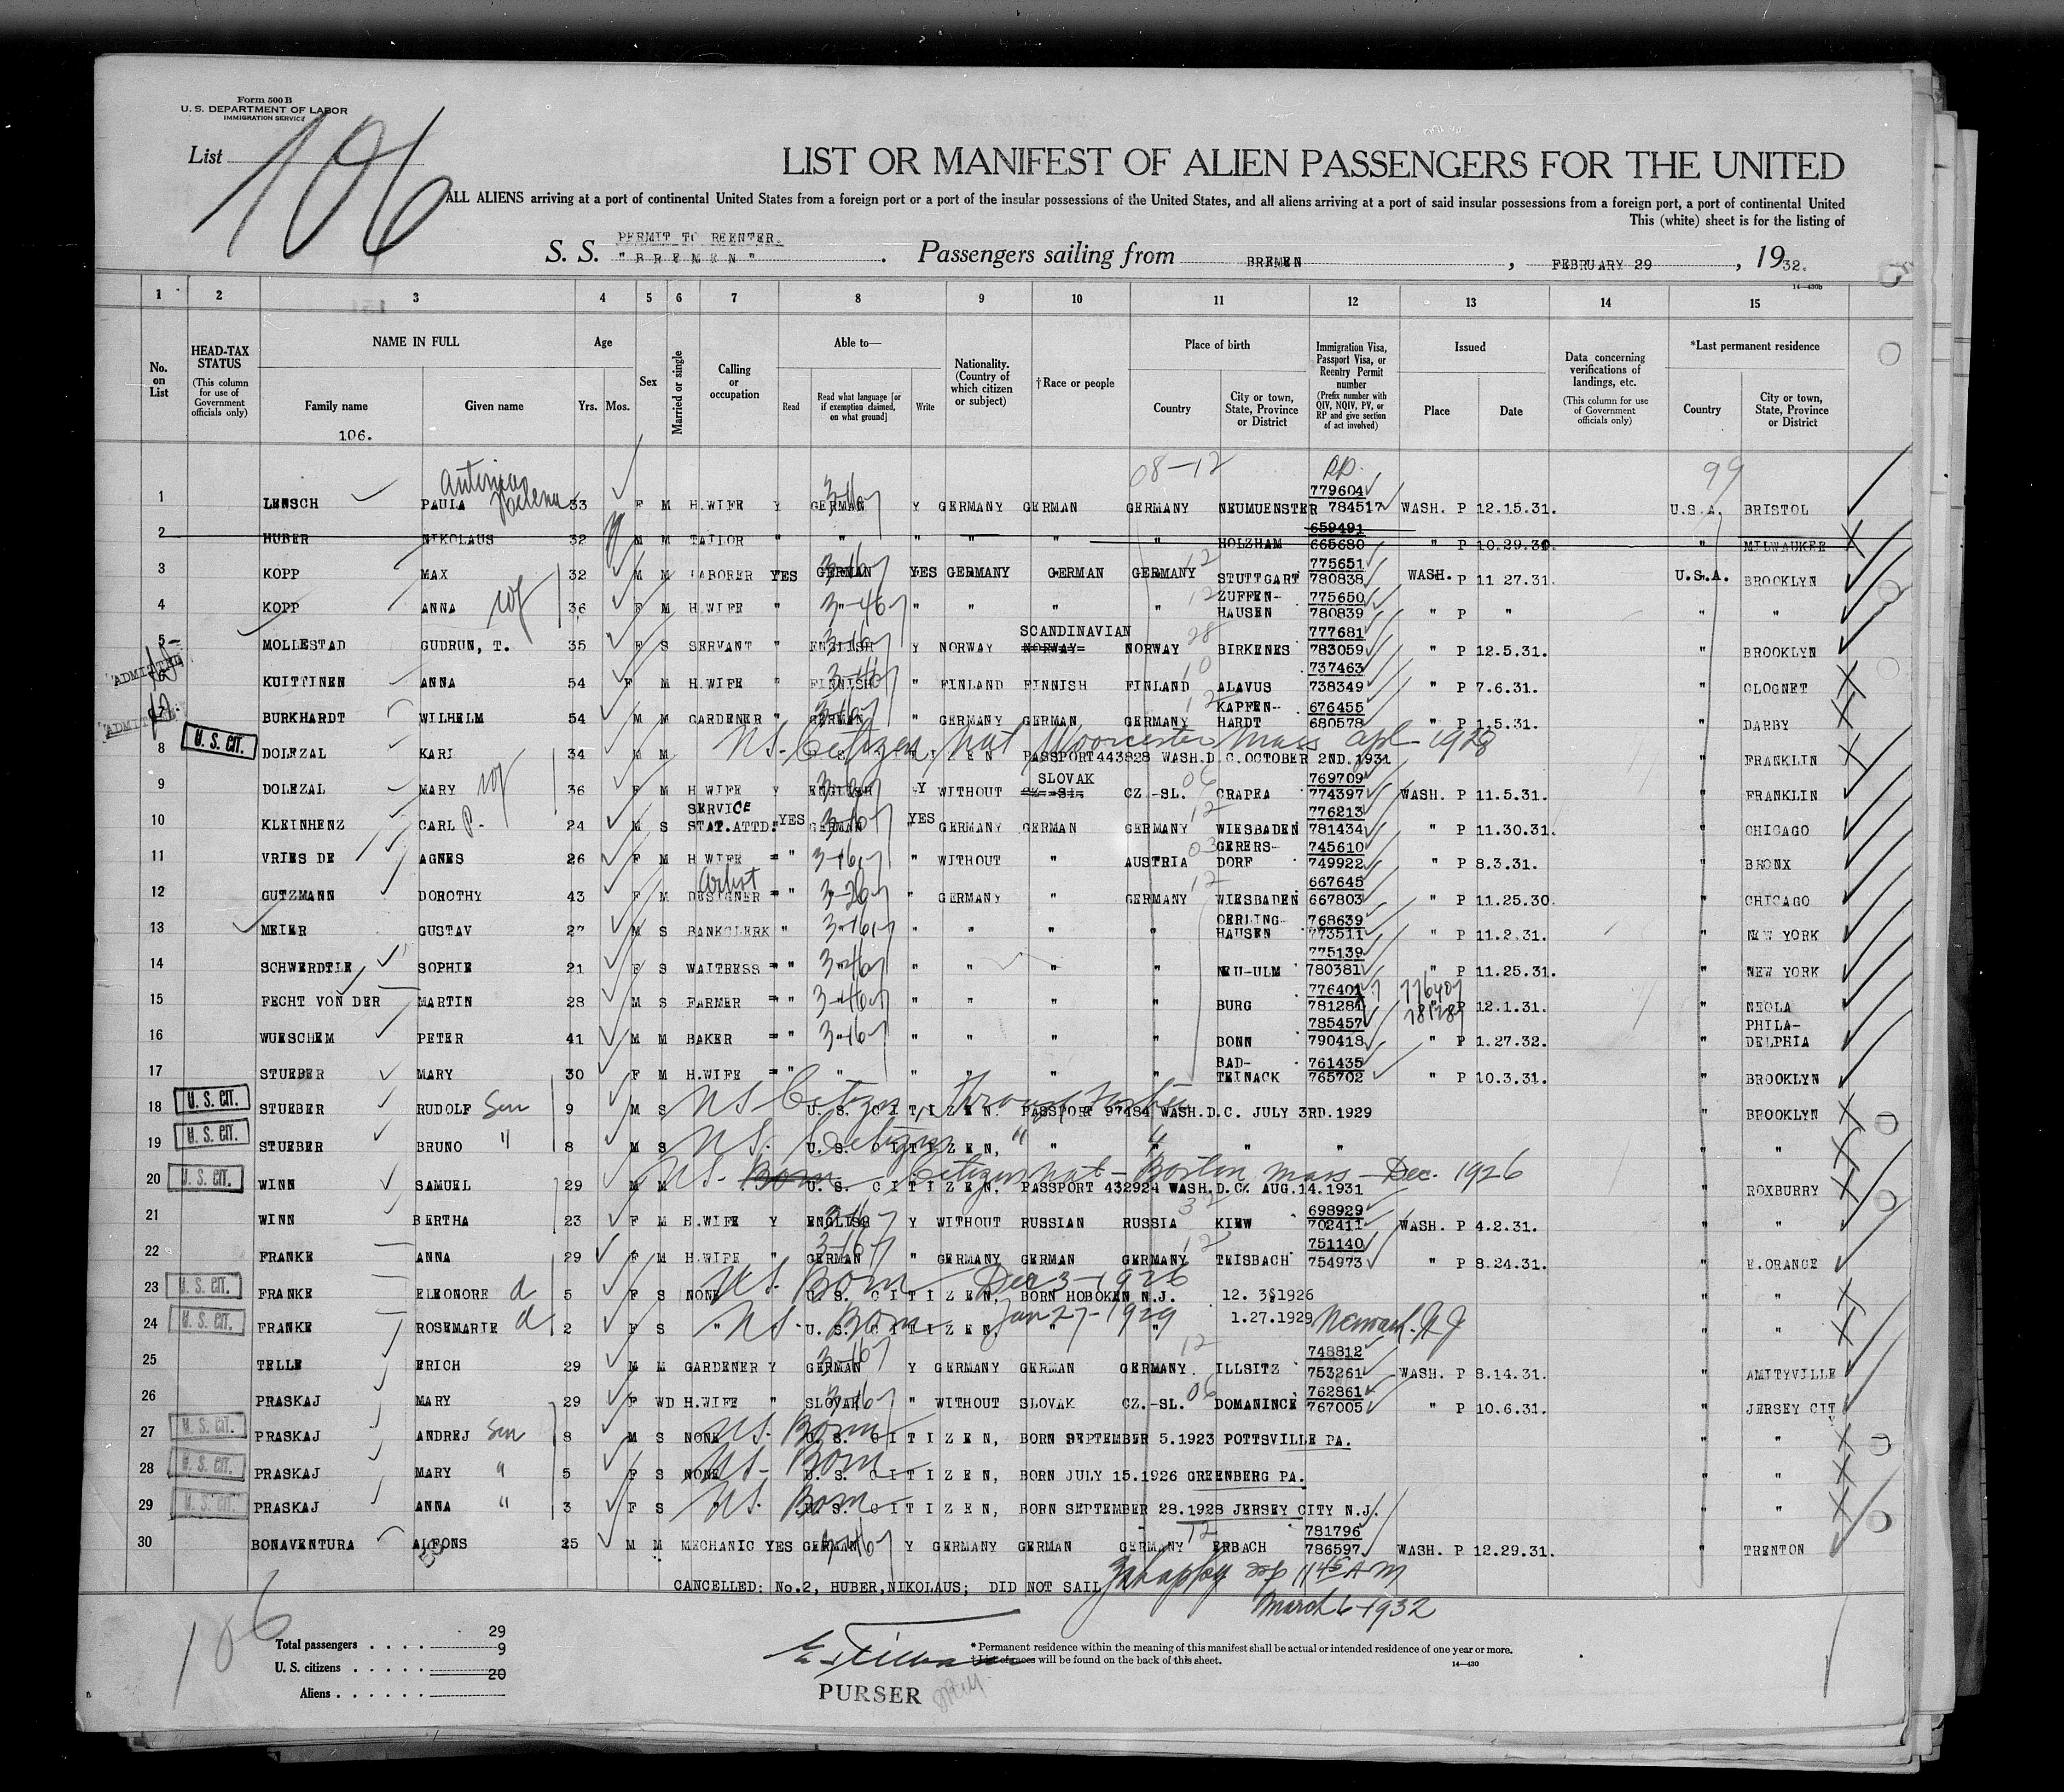 Form 500 B
U. S. DEPARTMENT OF LABOR
IMMIGRATION SERVICE
List 106
LIST OR MANIFEST OF ALIEN PASSENGERS FOR THE UNITED
ALL ALIENS arriving at a port of continental United States from a foreign port or a port of the insular possessions of the United States, and all aliens arriving at a port of said insular possessions from a foreign port, a port of continental United
This (white) sheet is for the listing of
PERMIT TO REENTER.
S. S. "BREMEN". Passengers sailing from BREMEN, FEBRUARY 29, 1932.
14—430b
1 2 3 4 5 6 7 8 9 10 11 12 13 14 15
No. on List
HEAD-TAX STATUS (This column for use of Government officials only)
NAME IN FULL Family name Given name
Age Yrs. Mos.
Sex
Married or single
Calling or occupation
Able to— Read Read what language [or if exemption claimed, on what ground] Write
Nationality. (Country of which citizen or subject)
†Race or people
Place of birth Country City or town, State, Province or District
Immigration Visa, Passport Visa, or Reentry Permit number (Prefix number with QIV, NQIV, PV, or RP and give section of act involved)
Issued Place Date
Data concerning verifications of landings, etc. (This column for use of Government officials only)
*Last permanent residence Country City or town, State, Province or District
106.
08-12 99
1 LENSCH PAULA Helena 33 F M H.WIFE Y GERMAN Y GERMANY GERMAN GERMANY NEUMUENSTER 779604 784517 WASH. P 12.15.31. U.S.A. BRISTOL
2 HUBER NIKOLAUS 32 M M TAILOR " " " " " " HOLZHAM 659491 665680 " P 10.29.30. " MILWAUKEE
3 KOPP MAX 32 M M LABORER YES GERMAN YES GERMANY GERMAN GERMANY STUTTGART 775651 780838 WASH. P 11.27.31. U.S.A. BROOKLYN
4 KOPP ANNA 36 F M H.WIFE " " " " " " ZUFFEN-HAUSEN 775650 780839 " P " " "
5 MOLLESTAD GUDRUN, T. 35 F S SERVANT " ENGLISH Y NORWAY SCANDINAVIAN NORWAY NORWAY BIRKENES 777681 783059 " P 12.5.31. " BROOKLYN
ADMITTED KUITTINEN ANNA 54 F M H.WIFE " FINNISH " FINLAND FINNISH FINLAND ALAVUS 737463 738349 " P 7.6.31. " CLOQNET
ADMITTED BURKHARDT WILHELM 54 M M GARDENER " GERMAN " GERMANY GERMAN GERMANY KAPFEN-HARDT 676455 680578 " P 1.5.31. " DARBY
8 U. S. CIT. DOLEZAL KARL 34 M M US. Citizen, Nat Worcester Mass apl 1928 PASSPORT 443828 WASH.D.C. OCTOBER 2ND.1931 " FRANKLIN
9 DOLEZAL MARY 36 F M H.WIFE Y ENGLISH Y WITHOUT SLOVAK CZ.-SL. CRAPEA 769709 774397 WASH. P 11.5.31. " FRANKLIN
10 KLEINHENZ CARL P. 24 M S SERVICE STAT.ATTD. YES GERMAN YES GERMANY GERMAN GERMANY WIESBADEN 776213 781434 " P 11.30.31. " CHICAGO
11 VRIES DE AGNES 26 F M H.WIFE " " WITHOUT " AUSTRIA GERERS-DORF 745610 749922 " P 8.3.31. " BRONX
12 GUTZMANN DOROTHY 43 F M Artist DESIGNER " " GERMANY " GERMANY WIESBADEN 667645 667803 " P 11.25.30. " CHICAGO
13 MEIER GUSTAV 27 M S BANKCLERK " " " " " " OERLING-HAUSEN 768639 773511 " P 11.2.31. " NEW YORK
14 SCHWERDTLE SOPHIE 21 F S WAITRESS " " " " " " NEU-ULM 775139 780381 " P 11.25.31. " NEW YORK
15 FECHT VON DER MARTIN 28 M S FARMER " " " " " " BURG 776401 781281 776407 781289 P 12.1.31. " NEOLA
16 WUESCHEM PETER 41 M M BAKER " " " " " " BONN 785457 790418 " P 1.27.32. " PHILA-DELPHIA
17 STUEBER MARY 30 F M H.WIFE " " " " " " BAD-TEINACK 761435 765702 " P 10.3.31. " BROOKLYN
18 U. S. CIT. STUEBER RUDOLF Son 9 M S US Citizen, through father U.S. CITIZEN, PASSPORT 97484 WASH.D.C. JULY 3RD.1929 " BROOKLYN
19 U. S. CIT. STUEBER BRUNO " 8 M S US. Citizen U.S. CITIZEN, " " " " " "
20 U. S. CIT. WINN SAMUEL 29 M M US. Born Citizen Nat - Boston Mass - Dec. 1926 U.S. CITIZEN, PASSPORT 432924 WASH.D.C. AUG.14.1931 " ROXBURRY
21 WINN BERTHA 23 F M H.WIFE Y ENGLISH Y WITHOUT RUSSIAN RUSSIA KIEW 698929 702411 WASH. P 4.2.31. " "
22 FRANKE ANNA 29 F M H.WIFE " GERMAN " GERMANY GERMAN GERMANY TEISBACH 751140 754973 " P 8.24.31. " E.ORANGE
23 U. S. CIT. FRANKE ELEONORE d 5 F S NONE US. Born Dec 3-1926 U.S. CITIZEN, BORN HOBOKEN N.J. 12. 3.1926 " "
24 U. S. CIT. FRANKE ROSEMARIE d 2 F S " US. Born Jan 27-1929 U.S. CITIZEN, " " 1.27.1929 Newark. N J " "
25 TELLE ERICH 29 M M GARDENER Y GERMAN Y GERMANY GERMAN GERMANY. ILLSITZ 748812 753261 WASH. P 8.14.31. " AMITYVILLE
26 PRASKAJ MARY 29 F WD H.WIFE " SLOVAK " WITHOUT SLOVAK CZ.-SL. DOMANINCE 762861 767005 " P 10.6.31. " JERSEY CITY
27 U. S. CIT. PRASKAJ ANDREJ Son 8 M S NONE US. Born U.S. CITIZEN, BORN SEPTEMBER 5.1923 POTTSVILLE PA. " "
28 U. S. CIT. PRASKAJ MARY " 5 F S NONE US- Born U.S. CITIZEN, BORN JULY 15.1926 GREENBERG PA. " "
29 U. S. CIT. PRASKAJ ANNA " 3 F S " US. Born U.S. CITIZEN, BORN SEPTEMBER 28.1928 JERSEY CITY N.J. " "
30 BONAVENTURA ALFONS 25 M M MECHANIC YES GERMAN Y GERMANY GERMAN GERMANY ERBACH 781796 786597 WASH. P 12.29.31. " TRENTON
CANCELLED: No.2, HUBER,NIKOLAUS; DID NOT SAIL 1145 AM
March 6-1932
106
Total passengers 29
U. S. citizens 9
Aliens 20
PURSER
* Permanent residence within the meaning of this manifest shall be actual or intended residence of one year or more.
† List of races will be found on the back of this sheet.
14—430